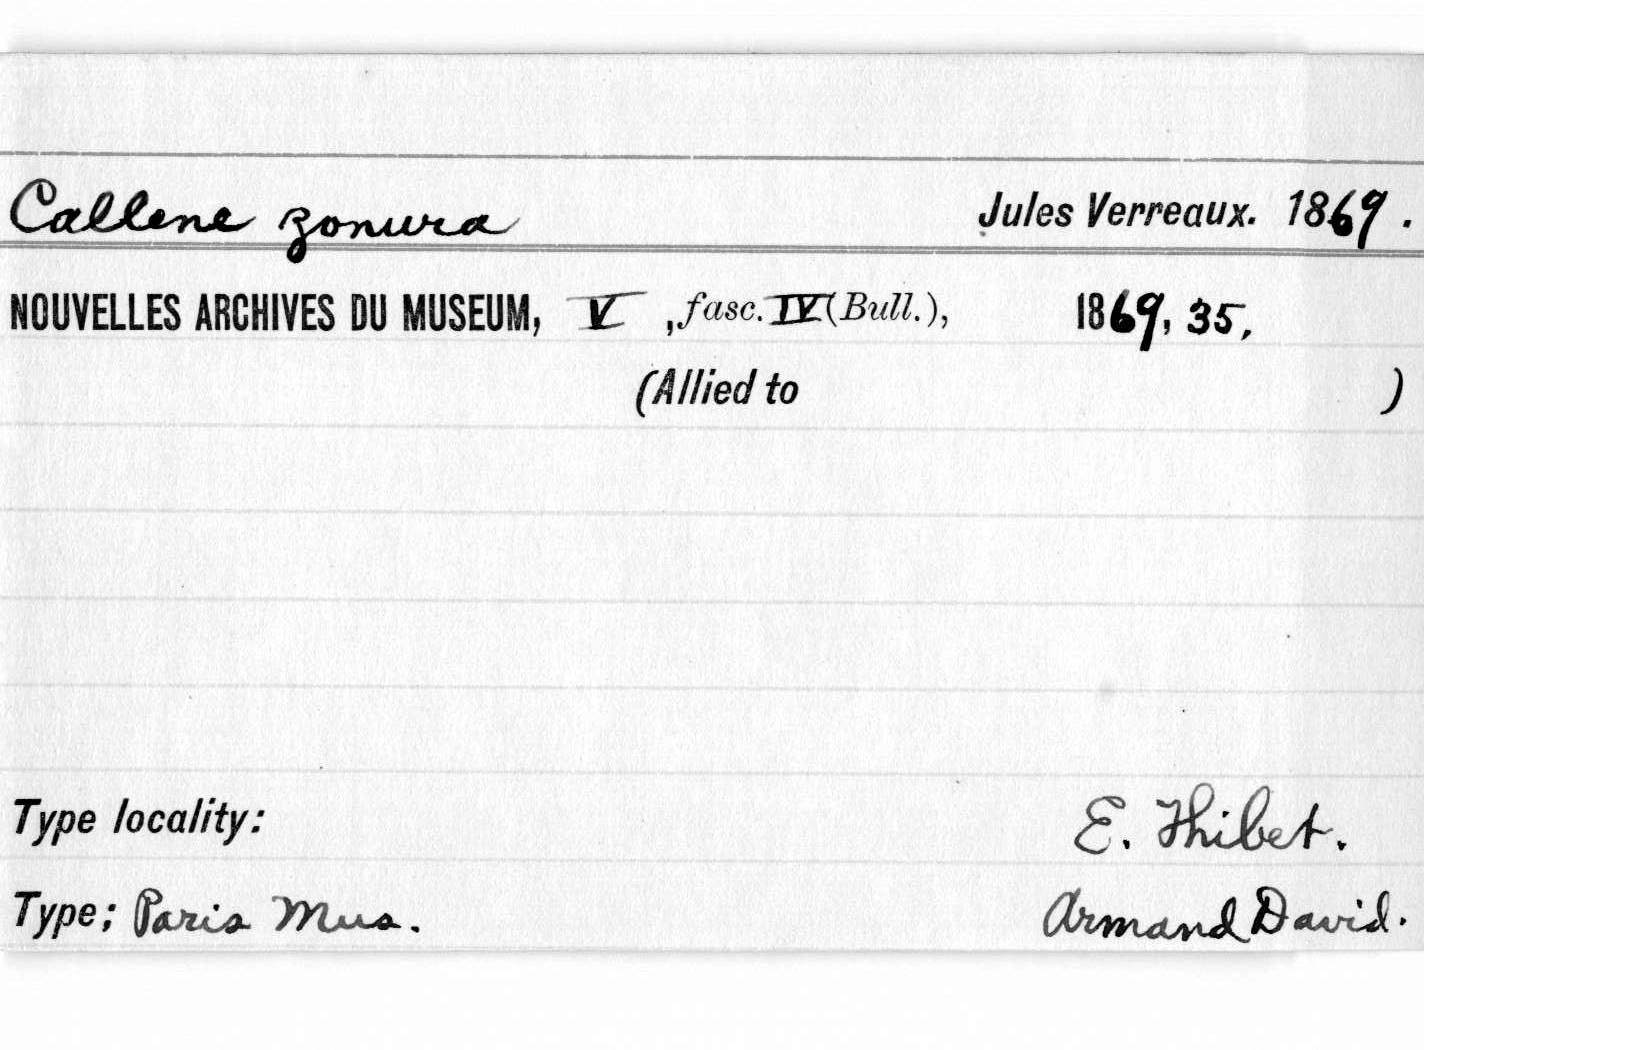 Callene zonura Jules Verreaux. 1869.
NOUVELLES ARCHIVES DU MUSEUM, V, fasc. IV (Bull.), 1869, 35,
(Allied to )
Type locality: E. Thibet.
Type; Paris Mus. Armand David.